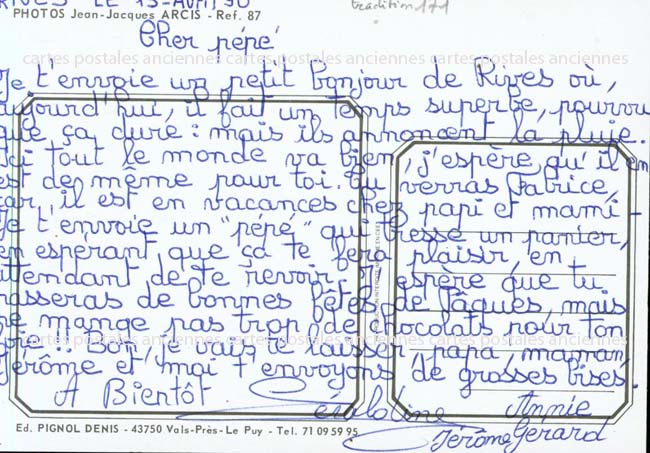 RIVES LE 13-Avril 90
tradition 171
PHOTOS Jean-Jacques ARCIS - Ref. 87
Cher pépé
cartes postales anciennes cartes postales anciennes cartes postales anciennes
Je t'envoie un petit bonjour de Rives où,
aujourd'hui, il fait un temps superbe, pourvu
que ça dure : mais ils annoncent la pluie.
Ici tout le monde va bien, j'espère qu'il en
est de même pour toi. Tu verras Fabrice,
car, il est en vacances chez papi et mami -
Je t'envoie un "pépé" qui tresse un panier,
en espérant que ça te fera plaisir, en
attendant de te revoir. J'espère que tu
passeras de bonnes fêtes de Pâques, mais
ne mange pas trop de chocolats pour ton
cartes postales anciennes cartes postales anciennes cartes postales anciennes
foie !! Bon, je vais te laisser, papa, maman,
Jérôme et moi t'envoyons de grosses bises.
A Bientôt.
Annie
Jérôme Gerard
Ed. PIGNOL DENIS - 43750 Vals-Près-Le Puy - Tel. 71 09 59 95